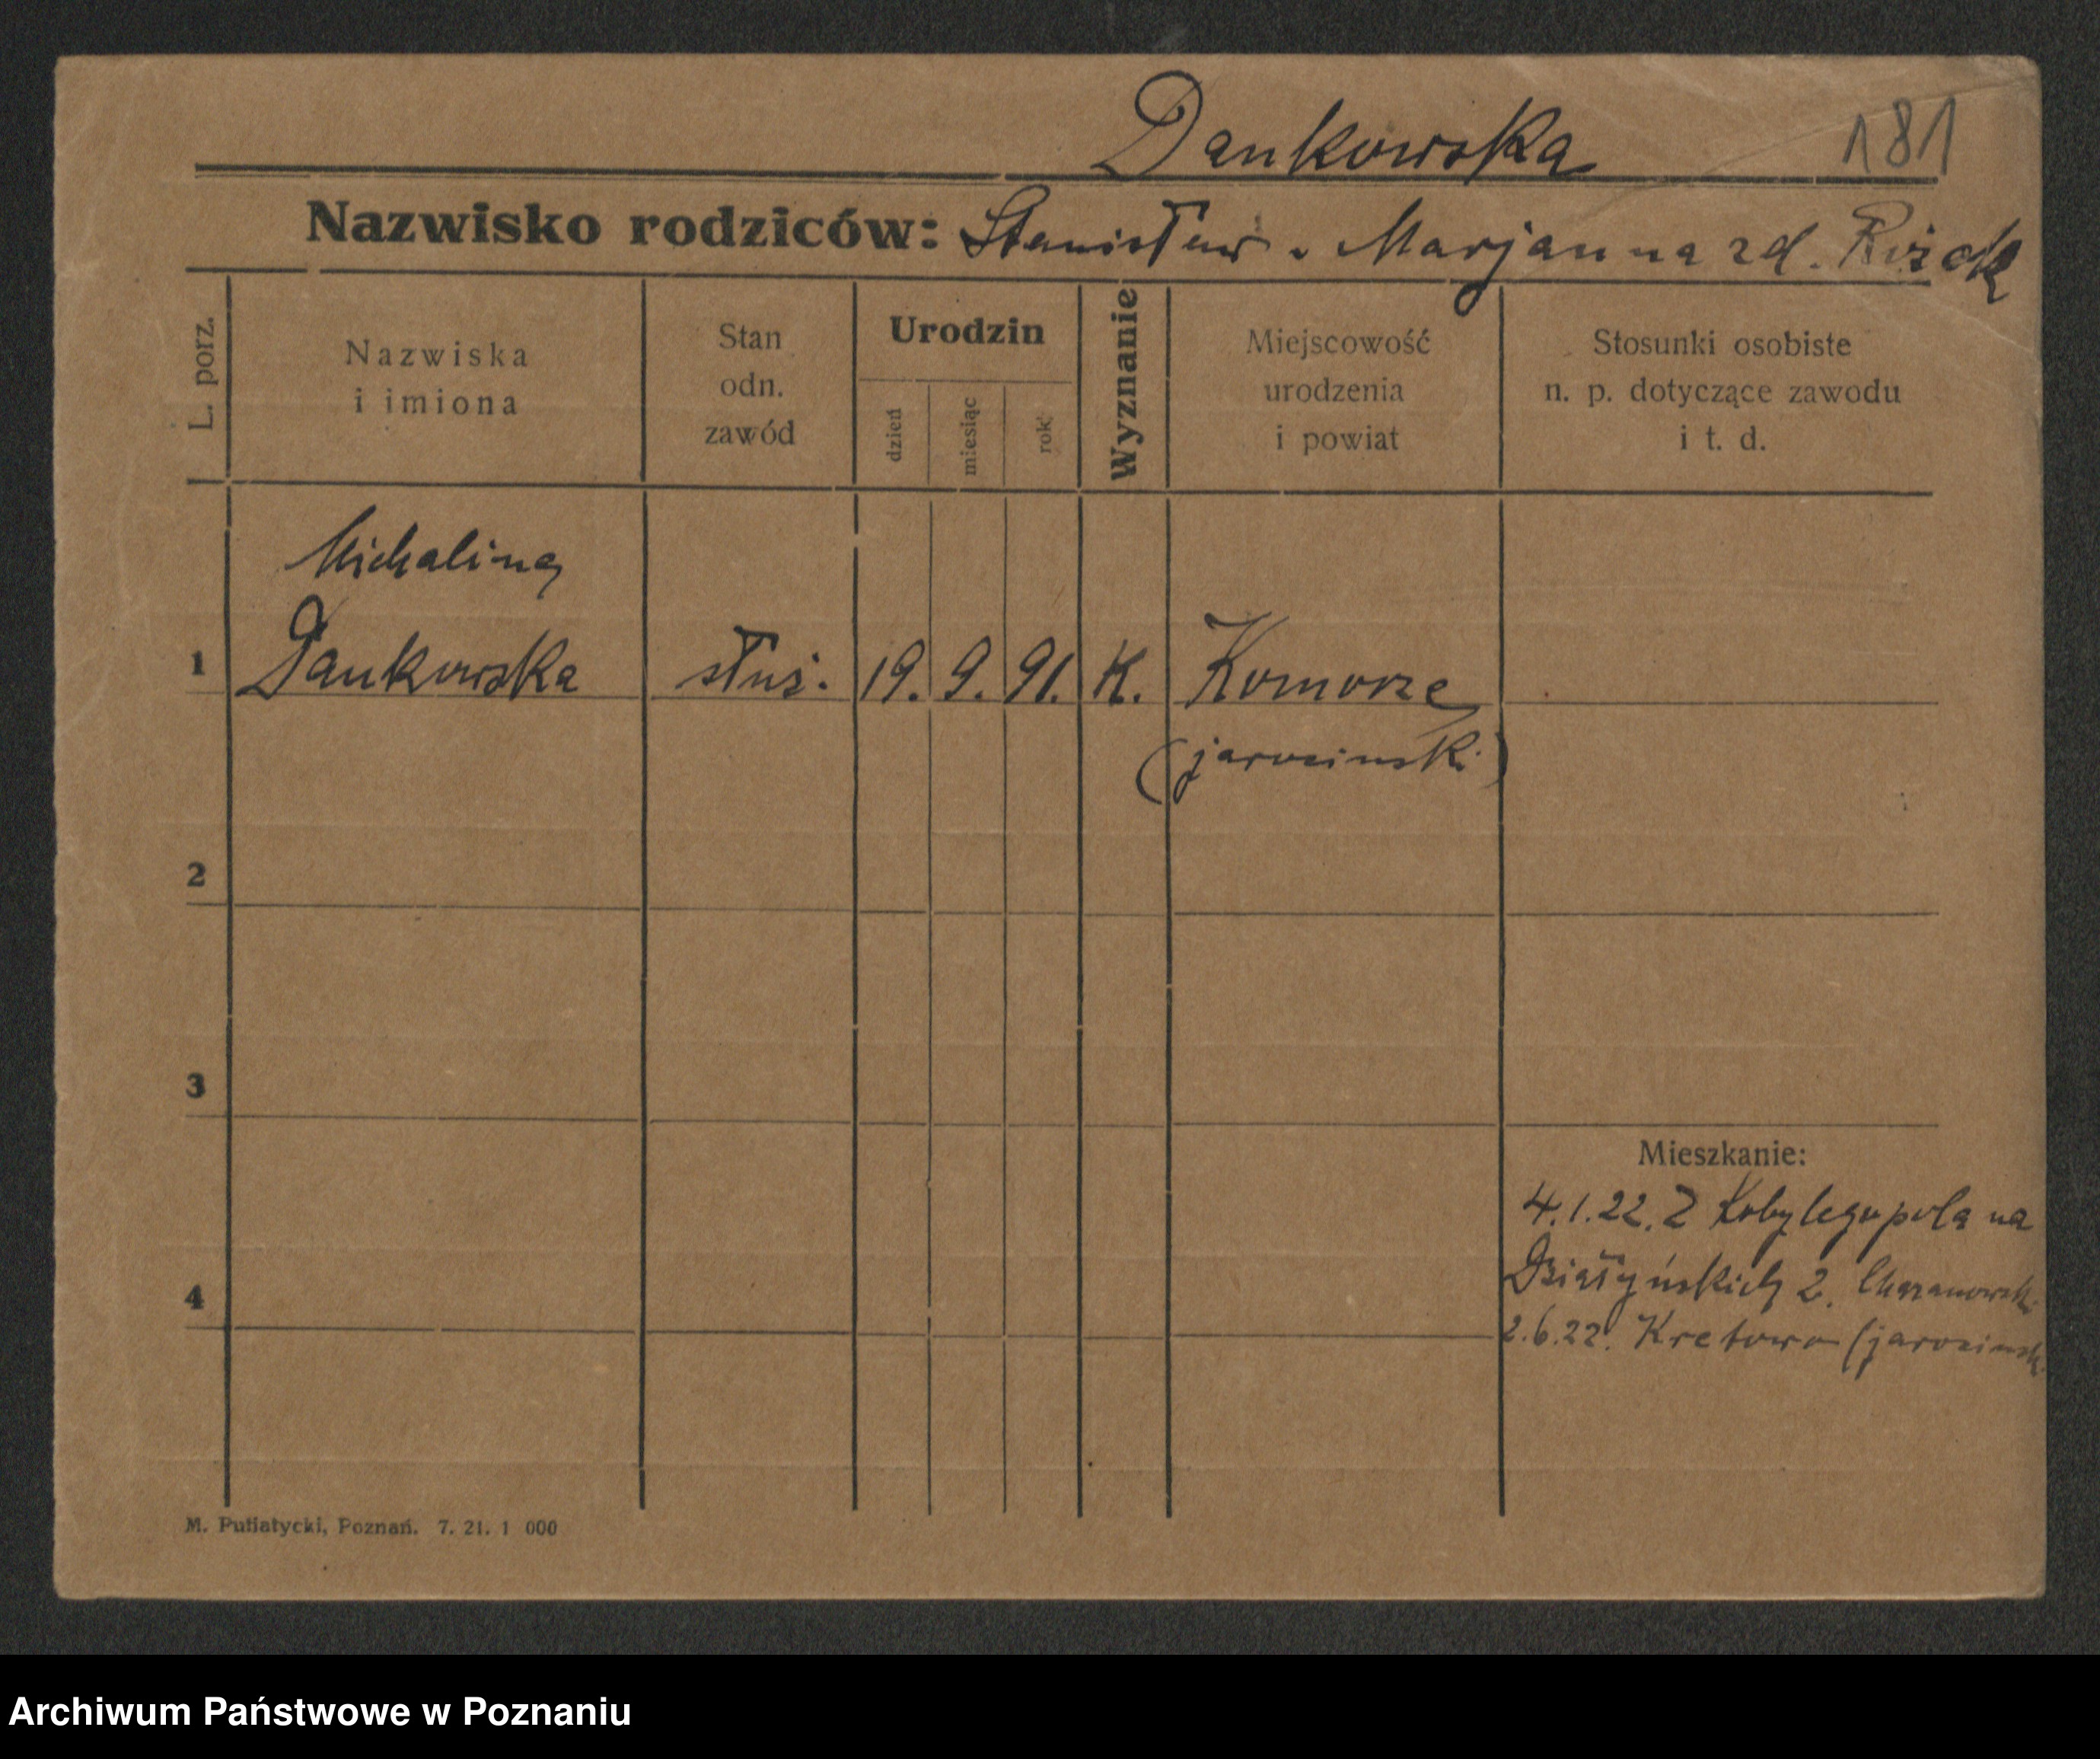 Dankowska 181
Nazwisko rodziców: Stanisław . Marjanna zd.
L. porz.
Nazwiska
i imiona
Stan
odn.
zawód
Urodzin
dzień
miesiąc
rok
Wyznanie
Miejscowość
urodzenia
i powiat
Stosunki osobiste
n. p. dotyczące zawodu
i t. d.
Michalina
1 Dankowska służ. 19. 9. 91. K. Komorze
(jarociński)
2
3
Mieszkanie:
4.1.22. Z Kobylegopola na
4
Działyńskich 2.
2.6.22. (jarocinsk.
M. Putiatycki, Poznań. 7. 21. 1 000
Archiwum Państwowe w Poznaniu